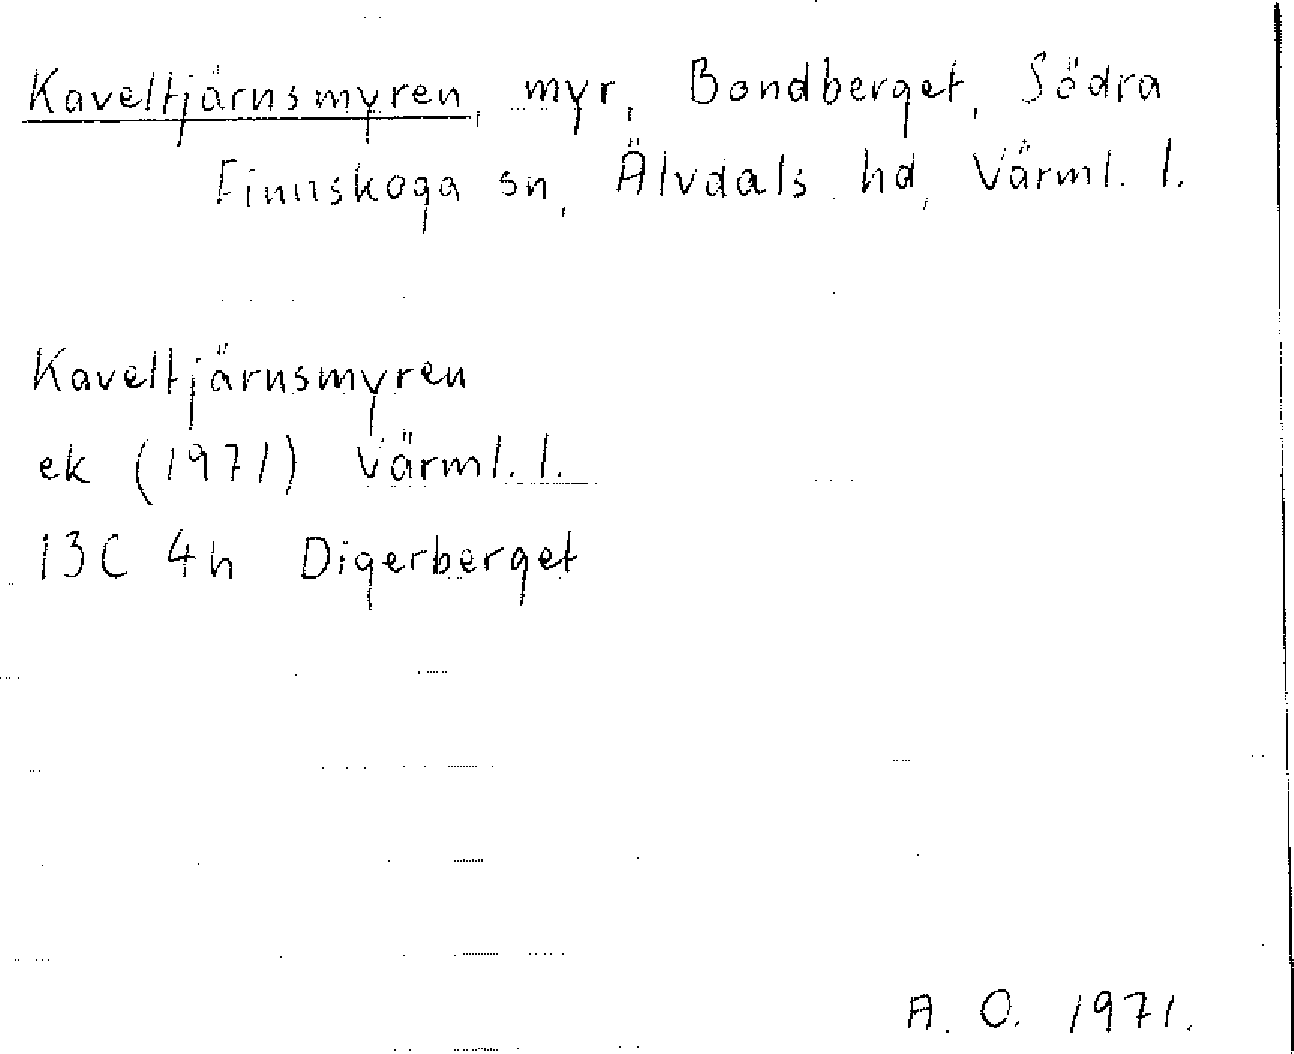 Kaveltjärnsmyren, myr, Bondberget, Södra
Finnskoga sn, Älvdals hd, Värml. l.
Kaveltjärnsmyren
ek (1971) Värml. l.
13C 4h Digerberget
A. O. 1971.